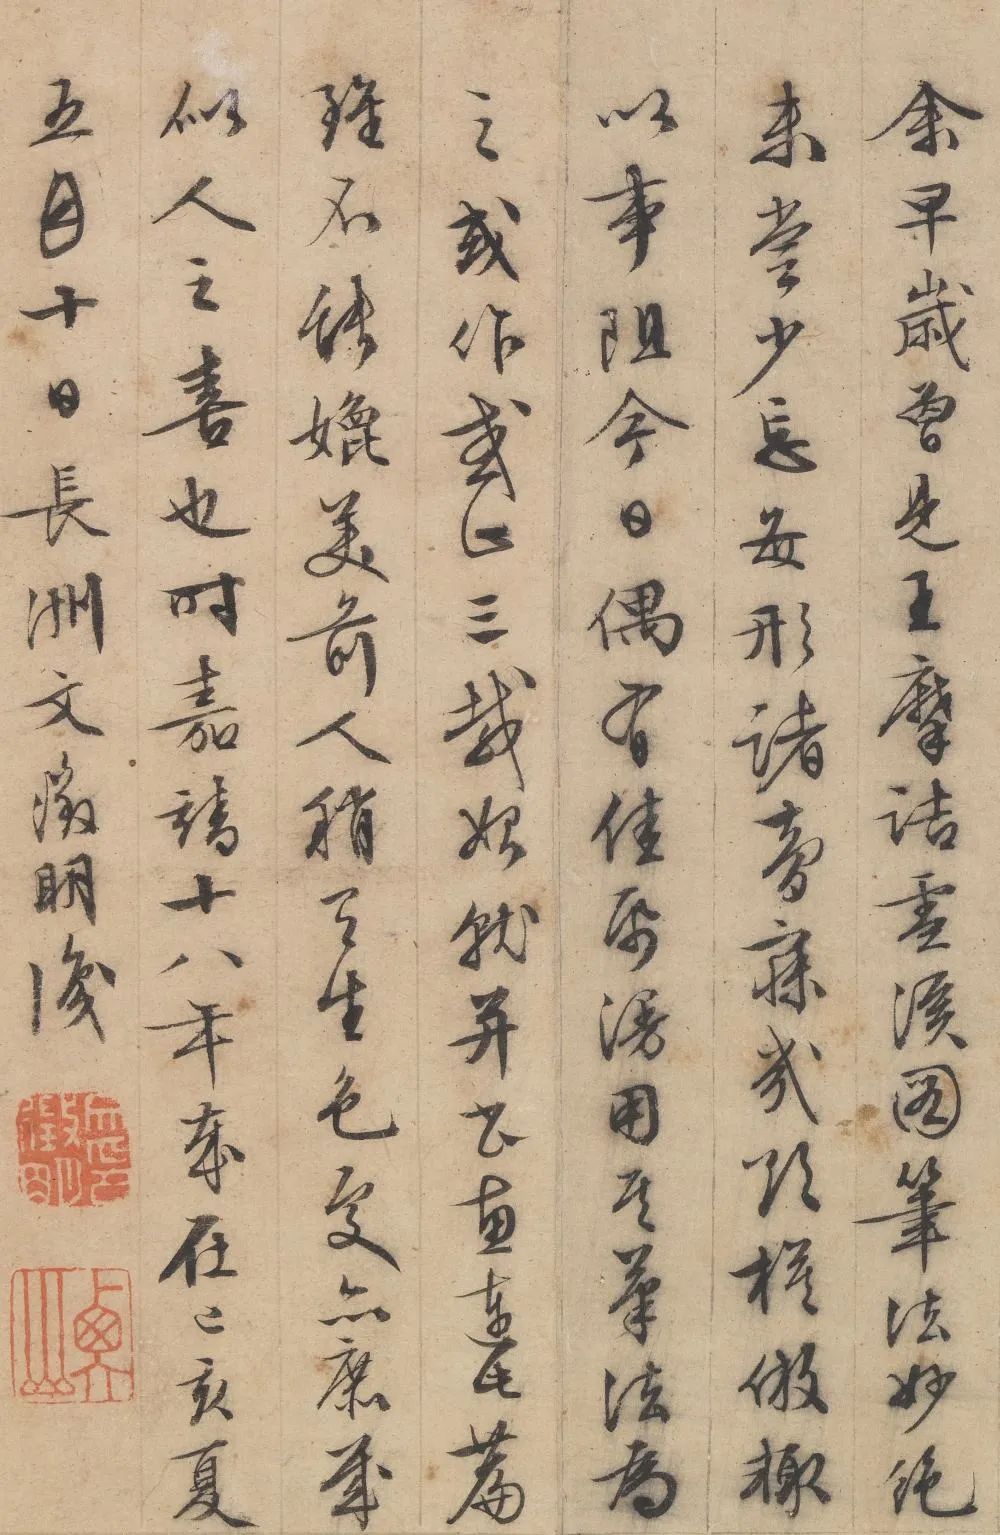 余早歲曾見王摩詰雪溪圖筆法妙絶
未嘗少忘每形諸夢寐幾欲模倣輒
以事阻今日偶有佳紙漫用其筆法為
之或作或止三載始就并書惠連
雖不能媲美前人稍生色處亦庶幾
似人之喜也時嘉靖十八年歲在己亥夏
五月十日長洲文徵明識
衡山